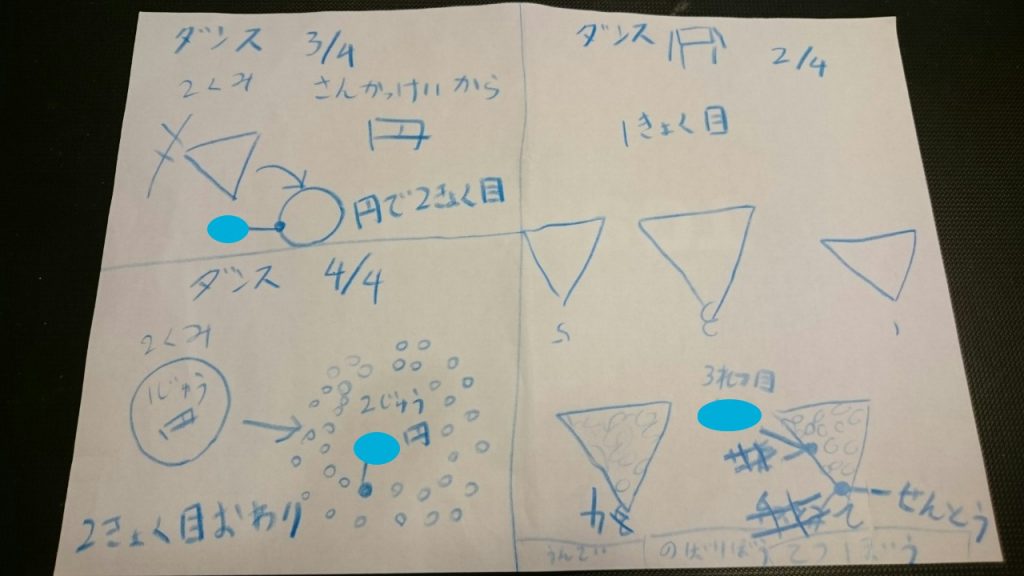 ダンス 3/4
2くみ さんかっけいから
円
円で2きょく目
ダンス 円 2/4
1きょく目
5 2 1
3れつ目
4
ぜんとう
うんてい のぼりぼう てつぼう
ダンス 4/4
2くみ
1じゅう
円
2じゅう
円
2きょく目おわり